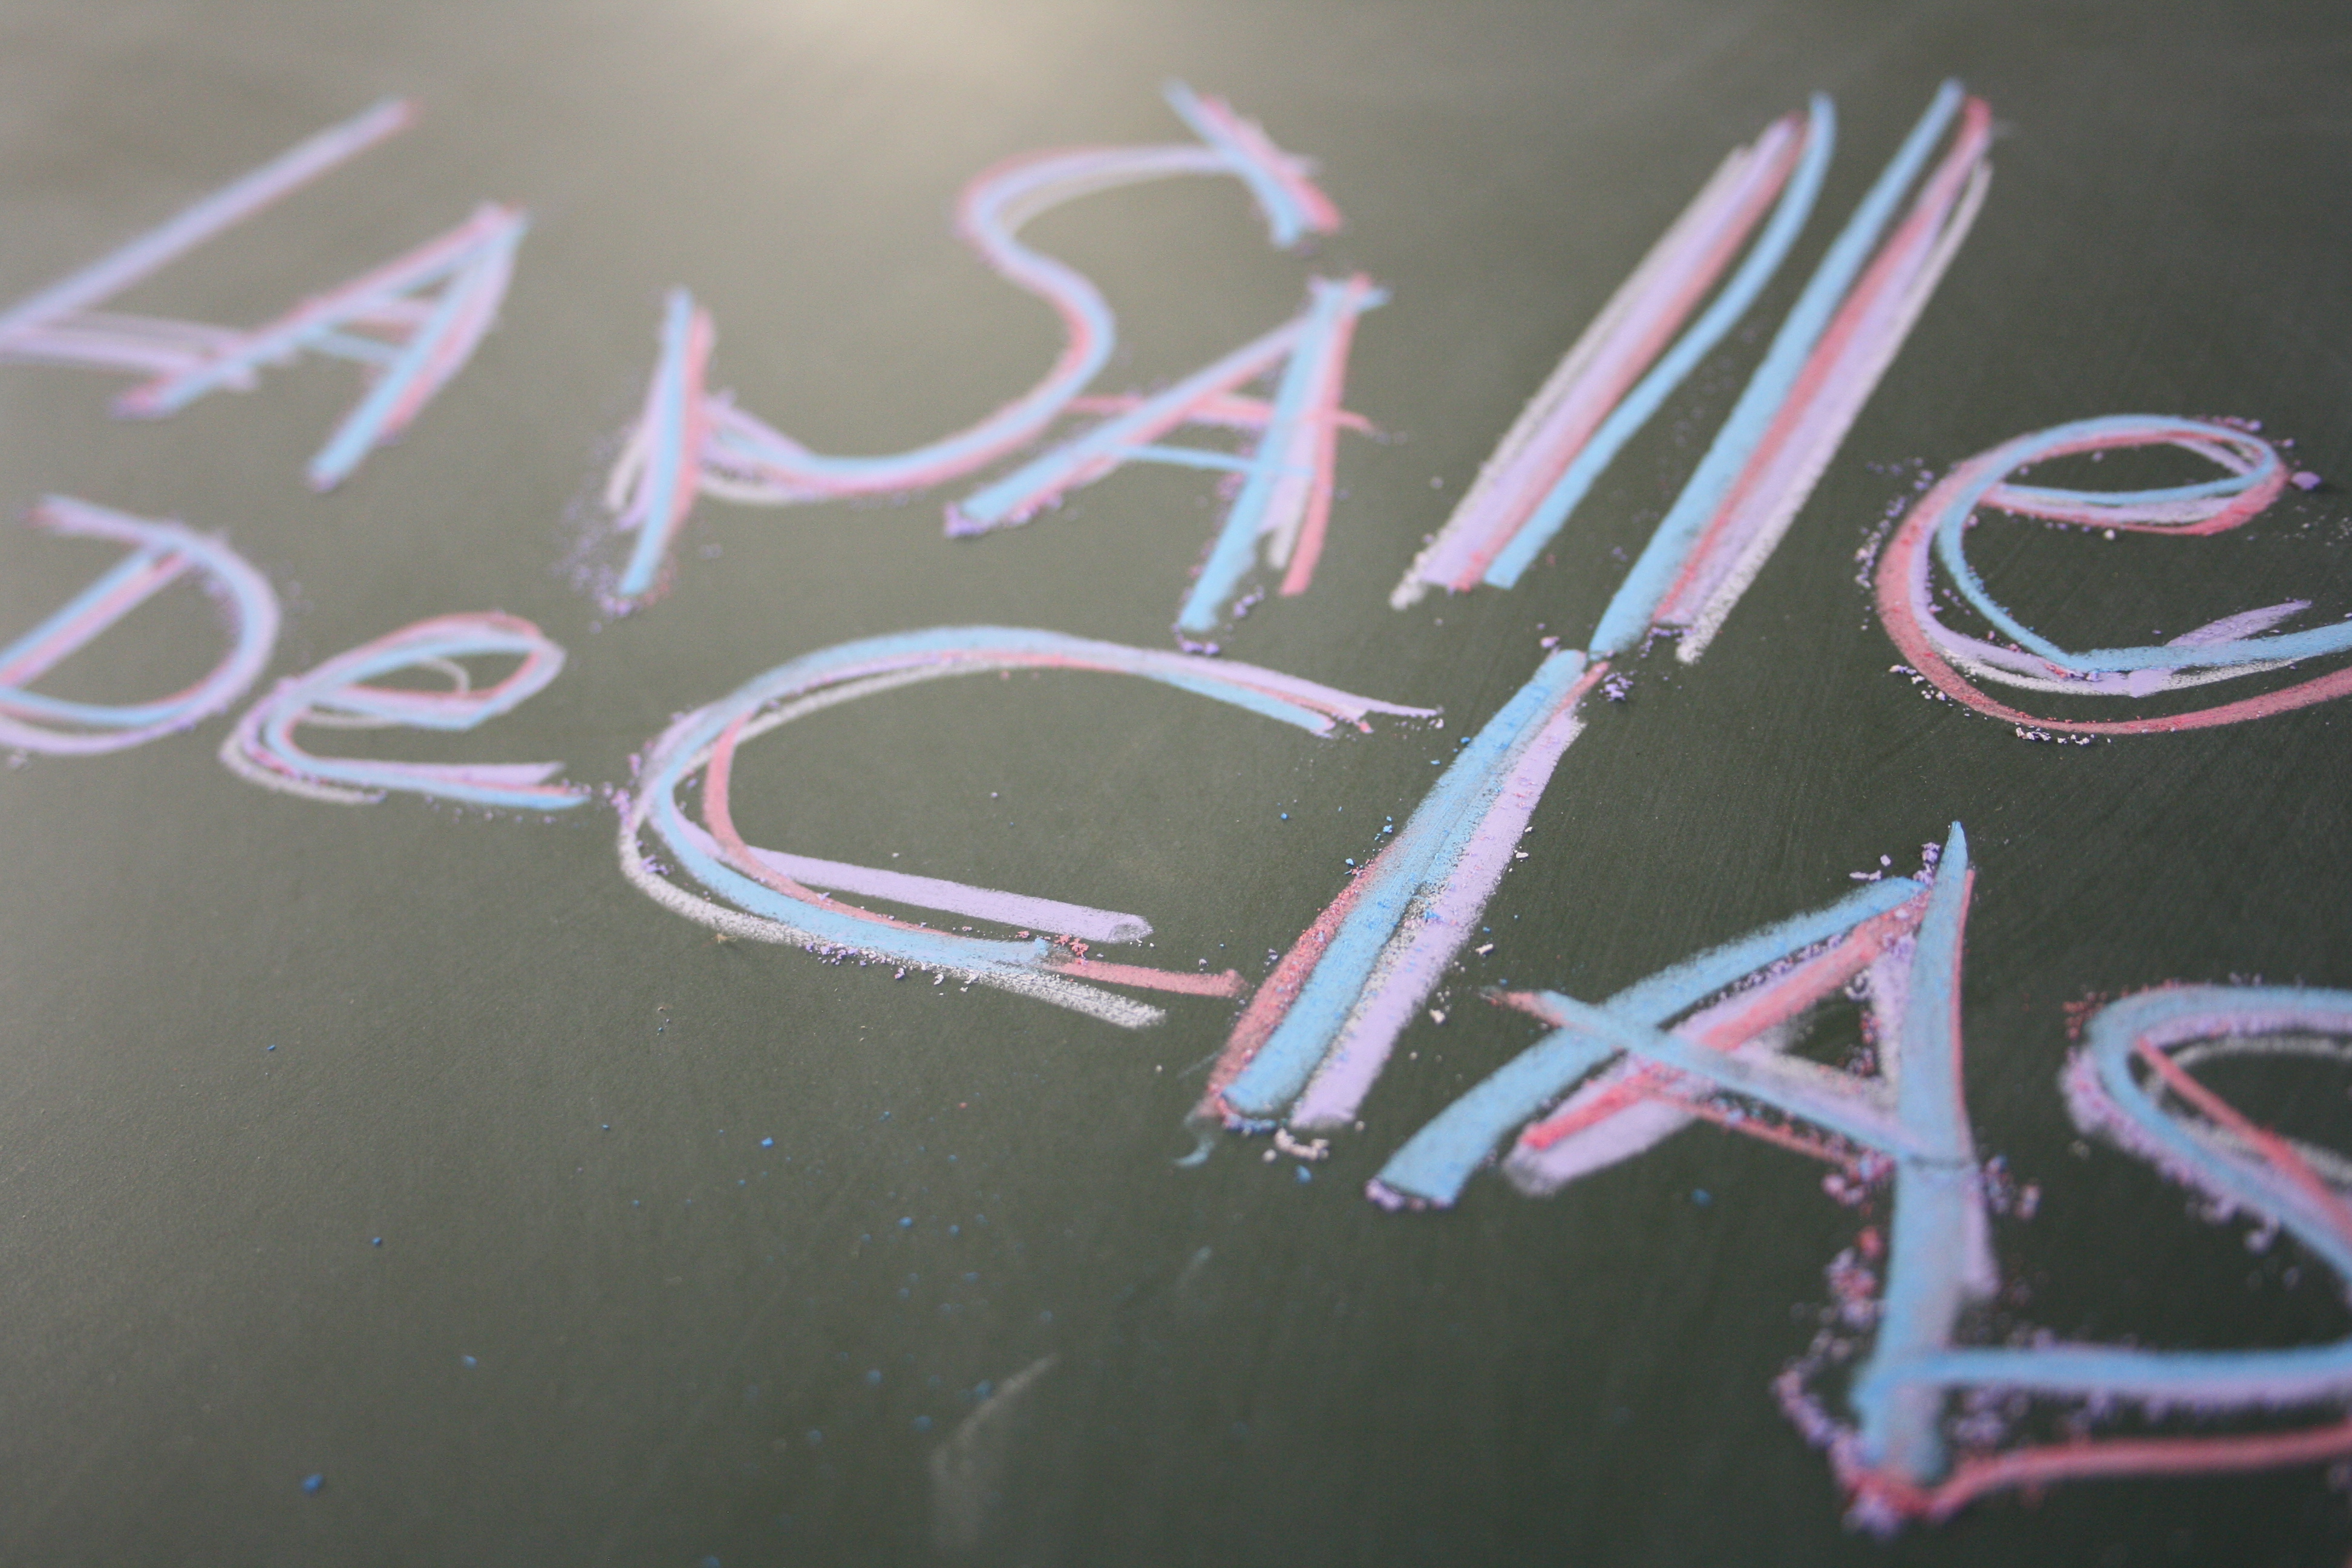 LA SAlle
De ClAS